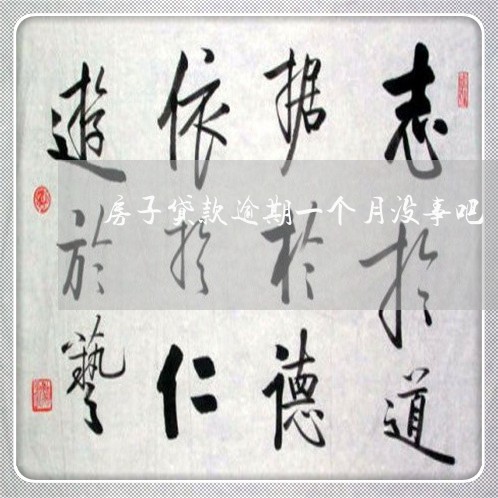 志於道
据於德
依於仁
遊於藝
房子贷款逾期一个月没事吧